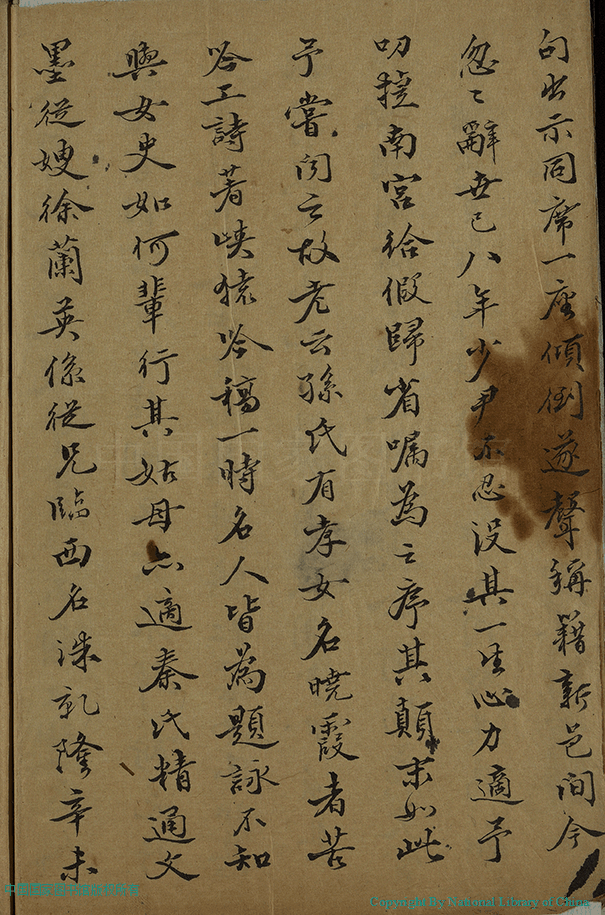 句出示同席一座傾倒遂聲稱籍新邑間今
忽〻辭世已八年少尹不忍没其一生心力適予
叨擢南宮給假歸省囑為之序其顛末如此
予嘗聞之故老云孫氏有孝女名曉霞者苦
吟工詩著峽猿吟稿一時名人皆為題詠不知
與女史如何輩行其姑母亦適秦氏精通文
墨從嫂徐蘭英係從兄臨西名洙乾隆辛未
Copyright by National Library of China